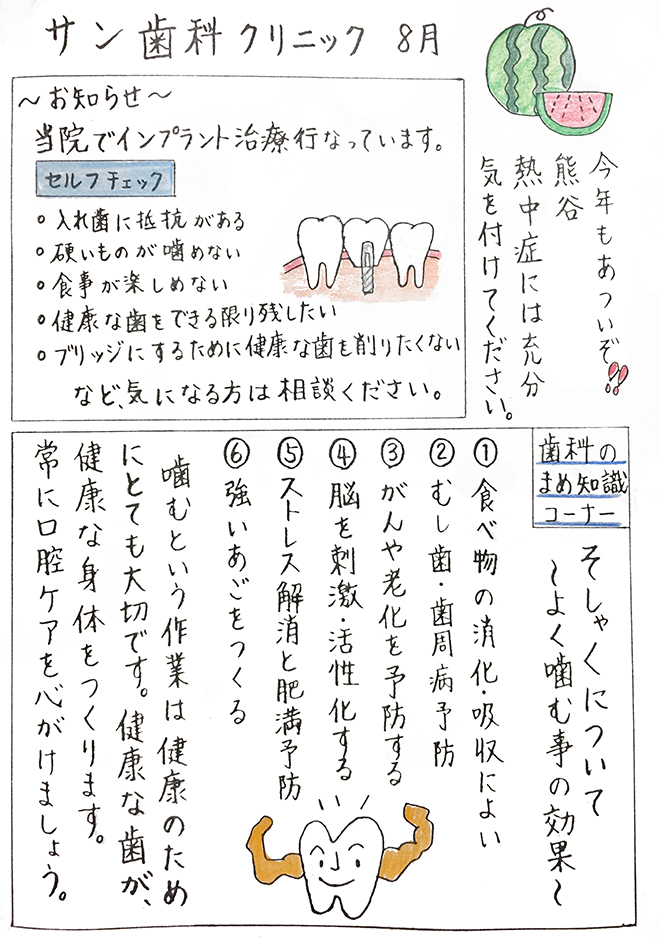 サン歯科クリニック 8月
〜お知らせ〜
当院でインプラント治療行なっています。
セルフチェック
○入れ歯に抵抗がある
○硬いものが噛めない
○食事が楽しめない
○健康な歯をできる限り残したい
○ブリッジにするために健康な歯を削りたくない
など、気になる方は相談ください。
今年もあついぞ!!
熊谷
熱中症には充分
気を付けてください。
歯科の
まめ知識
コーナー
そしゃくについて
〜よく噛む事の効果〜
①食べ物の消化・吸収によい
②むし歯・歯周病予防
③がんや老化を予防する
④脳を刺激・活性化する
⑤ストレス解消と肥満予防
⑥強いあごをつくる
噛むという作業は健康のため
にとても大切です。健康な歯が、
健康な身体をつくります。
常に口腔ケアを心がけましょう。